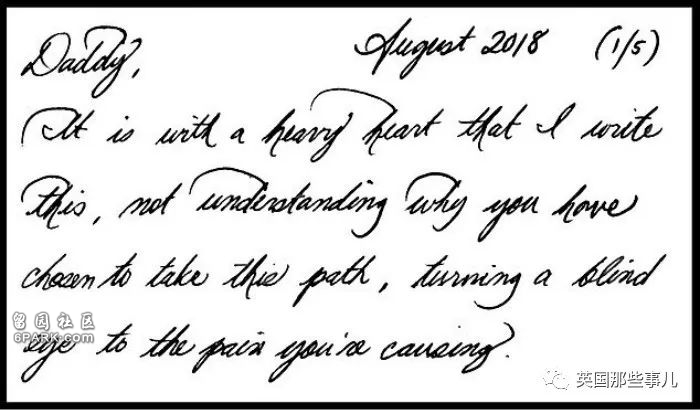 Daddy, August 2018 (1/5)
It is with a heavy heart that I write
this, not understanding why you have
chosen to take this path, turning a blind
eye to the pain you're causing.
留园社区
6PARK.COM
英国那些事儿